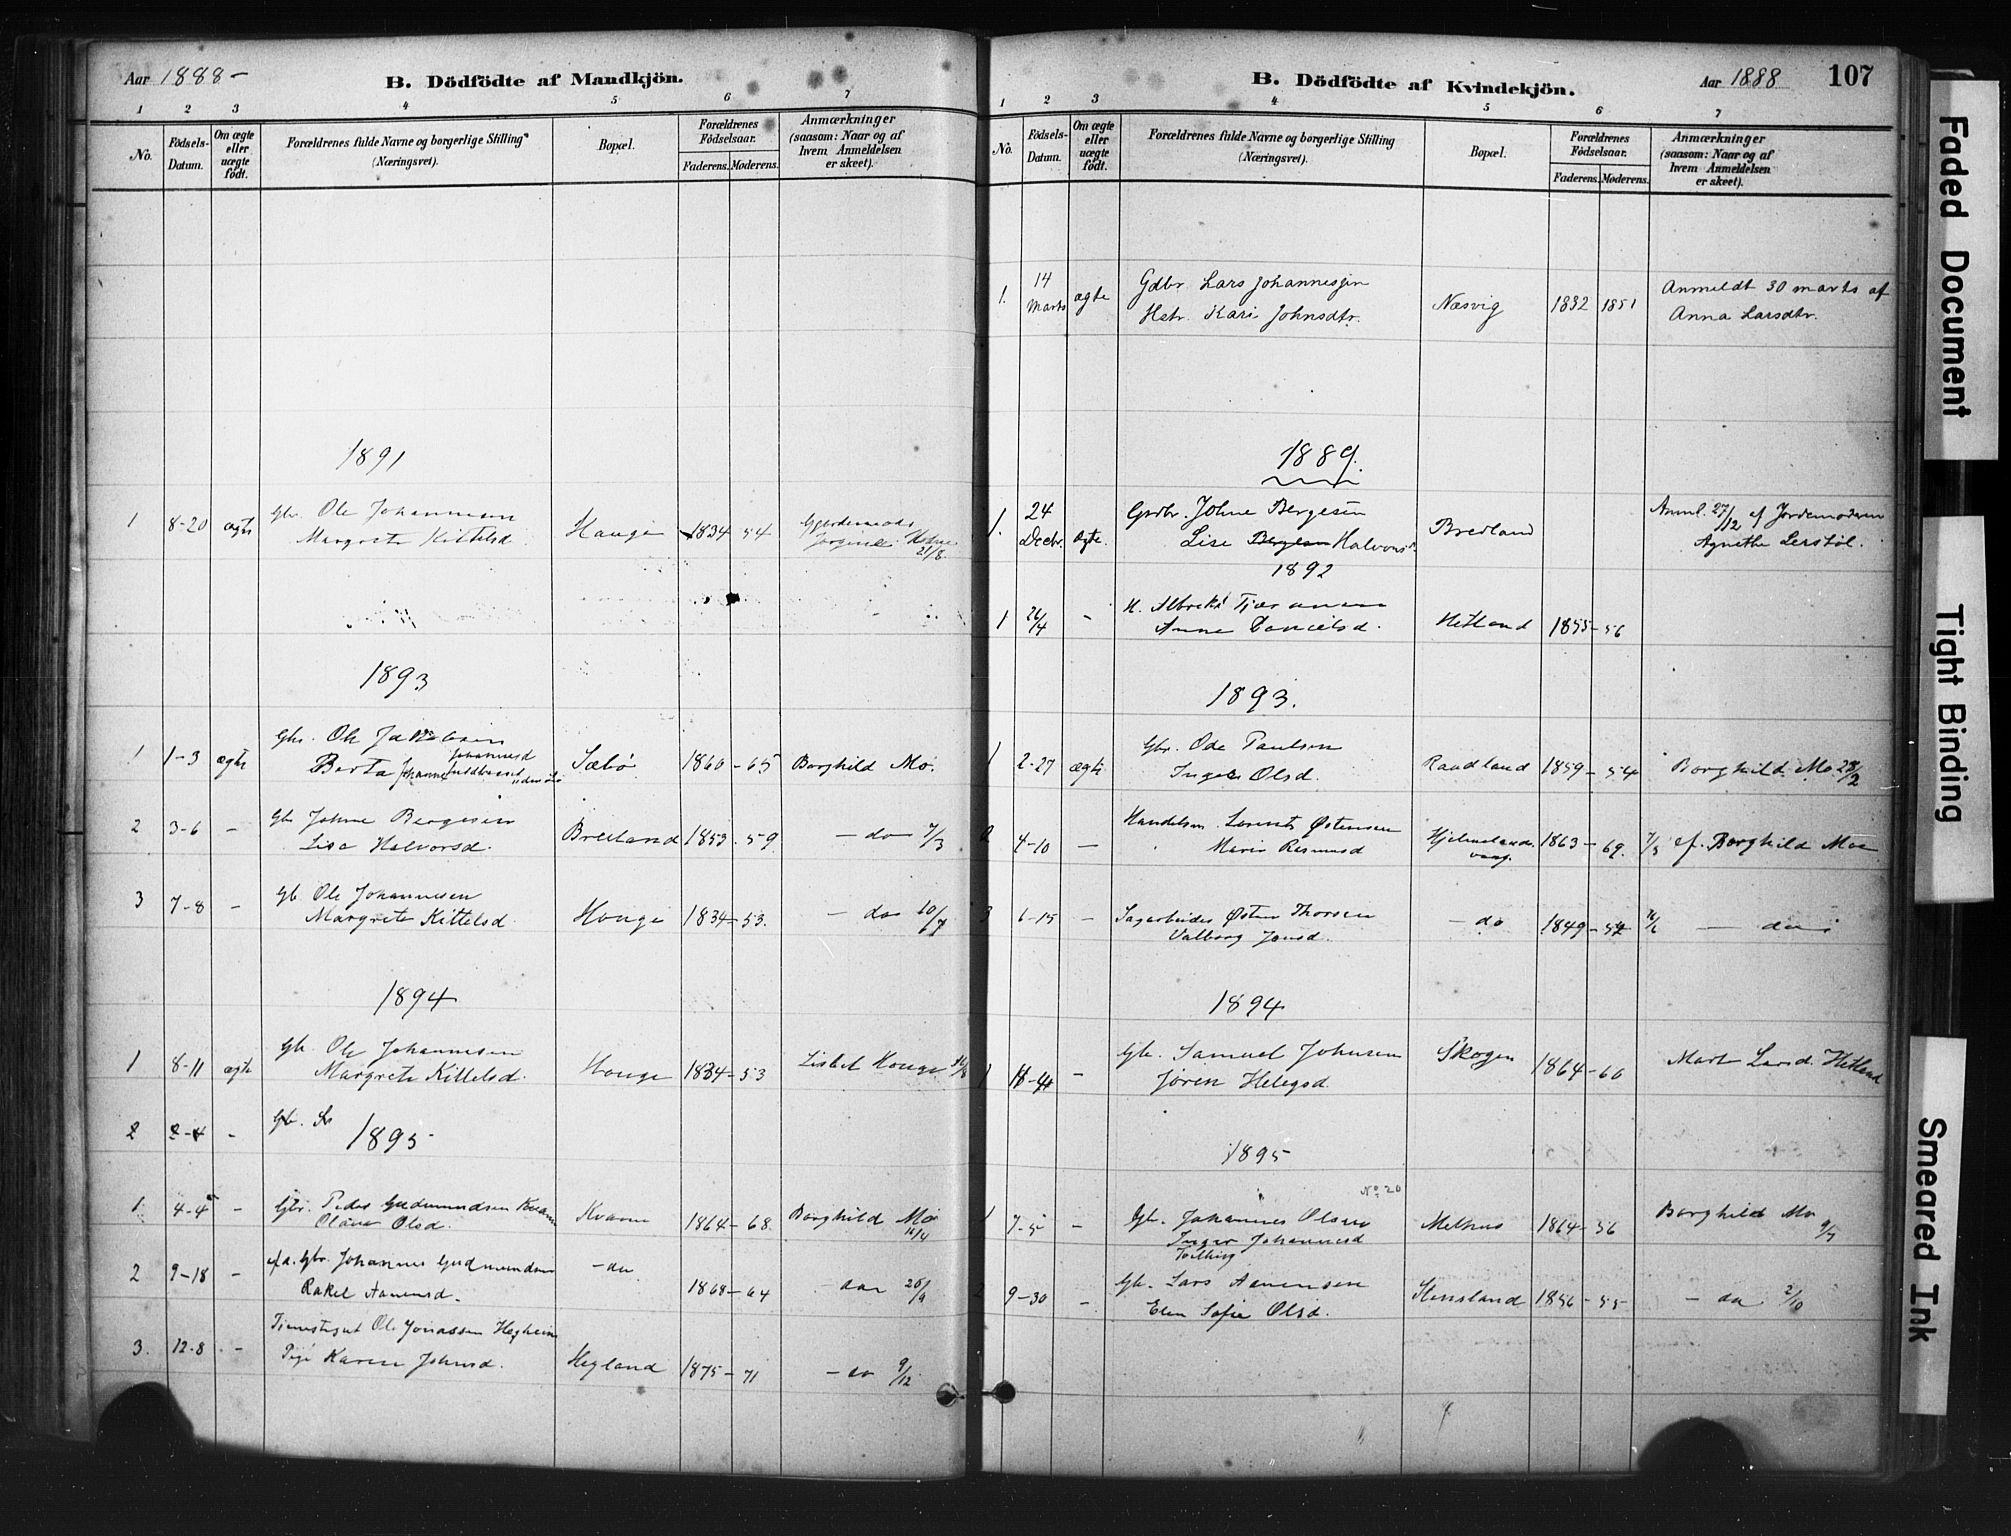 Aar 1888 –
B. Dödfödte af Mandkjön.
1 2 3 4 5 6 7
No.
Födsels-
Datum.
Om ægte
eller
uægte
født.
Forældrenes fulde Navne og borgerlige Stilling
(Næringsvei).
Bopæl.
Forældrenes
Fødselsaar.
Faderens. Moderens.
Anmærkninger
(saasom: Naar og af
hvem Anmeldelsen
er skeet).
1891
1 8-20 ægte Gbr. Ole Johannesen
Margrete Kittelsd. Hauge 1834 54
21/8.
1893
1 1-3 ægte Gbr. Ole
Berta Johannesd Sæbø 1860 – 65 Borghild Mo.
2 3-6 – Gb Johne Bergesen
Lise Halvorsd. Breiland 1853. 59 – do 7/3
3 7-8 – Gb Ole Johannesen
Margrete Kittelsd. Houge 1834 – 53. – do 10/7
1894
1 8-11 ægte Gb. Ole Johannesen
Margrete Kittelsd. Houge 1834 – 53 Lisbet Houge
2 2-4 – Gb.
1895
1 4-4 – Gbr. Peder Gudmundsen
Olava Olsd. Kvame 1864 – 68. Borghild Mo
2 9-18 – Gbr. Johannes Gudmundsen
Rakel Aanensd. – do 1868 – 64 – do 26/9
3. 12-8 – Ole Jonassen
Pige Karen Johnsd. Hegland 1875 – 71 – do 9/12
Aar 1888 107
B. Dödfödte af Kvindekjön.
1 2 3 4 5 6 7
No.
Födsels-
Datum.
Om ægte
eller
uægte
født.
Forældrenes fulde Navne og borgerlige Stilling
(Næringsvei).
Bopæl.
Forældrenes
Fødselsaar.
Faderens. Moderens.
Anmærkninger
(saasom: Naar og af
hvem Anmeldelsen
er skeet).
1. 14 Marts ægte Gdbr. Lars Johannesjen
Hstr. Kari Johnsdtr. Næsvig 1832 1851 Anmeldt 30 marts af
Anna Larsdtr.
1889.
1. 24 Decbr. ægte. Gdbr. Johne Bergesen
Lise Halvorsd. Bredland Anml. 27/12 af Jordemoderen
Agnethe Lerstøl.
1892
1 26/4 –
Anne Danielsd. Hetland 1855 – 56
1893.
1 2-27 ægte Gbr. Ode Paulsen
Inger Olsd. Raudland 1859 – 54 Borghild Mo 28/2
2 4-10 – Handelsm. Lorents Østensen
Maria Rasmusd Hjelmelands
vaag. 1863 – 69. af. Borghild Moe
3 6-15 – Sagarbeider Østen Thorsen
Valborg Jonsd. – do 1849 – 54 – do
1894
1 – Gb. Samuel Johnsen
Jøren Helegsd. Skogen 1864 – 66 Mart Larsd. Hetland
1895
No. 20
1 7-5 – Gb. Johannes Olsen
Inger Johannesd Melhus 1864 – 56 Borghild Mo 9/7
2 9-30 – Gb. Lars Aanensen
Elen Sofie Olsd. 1856 – 55 – do 2/10
Faded Document
Tight Binding
Smeared Ink